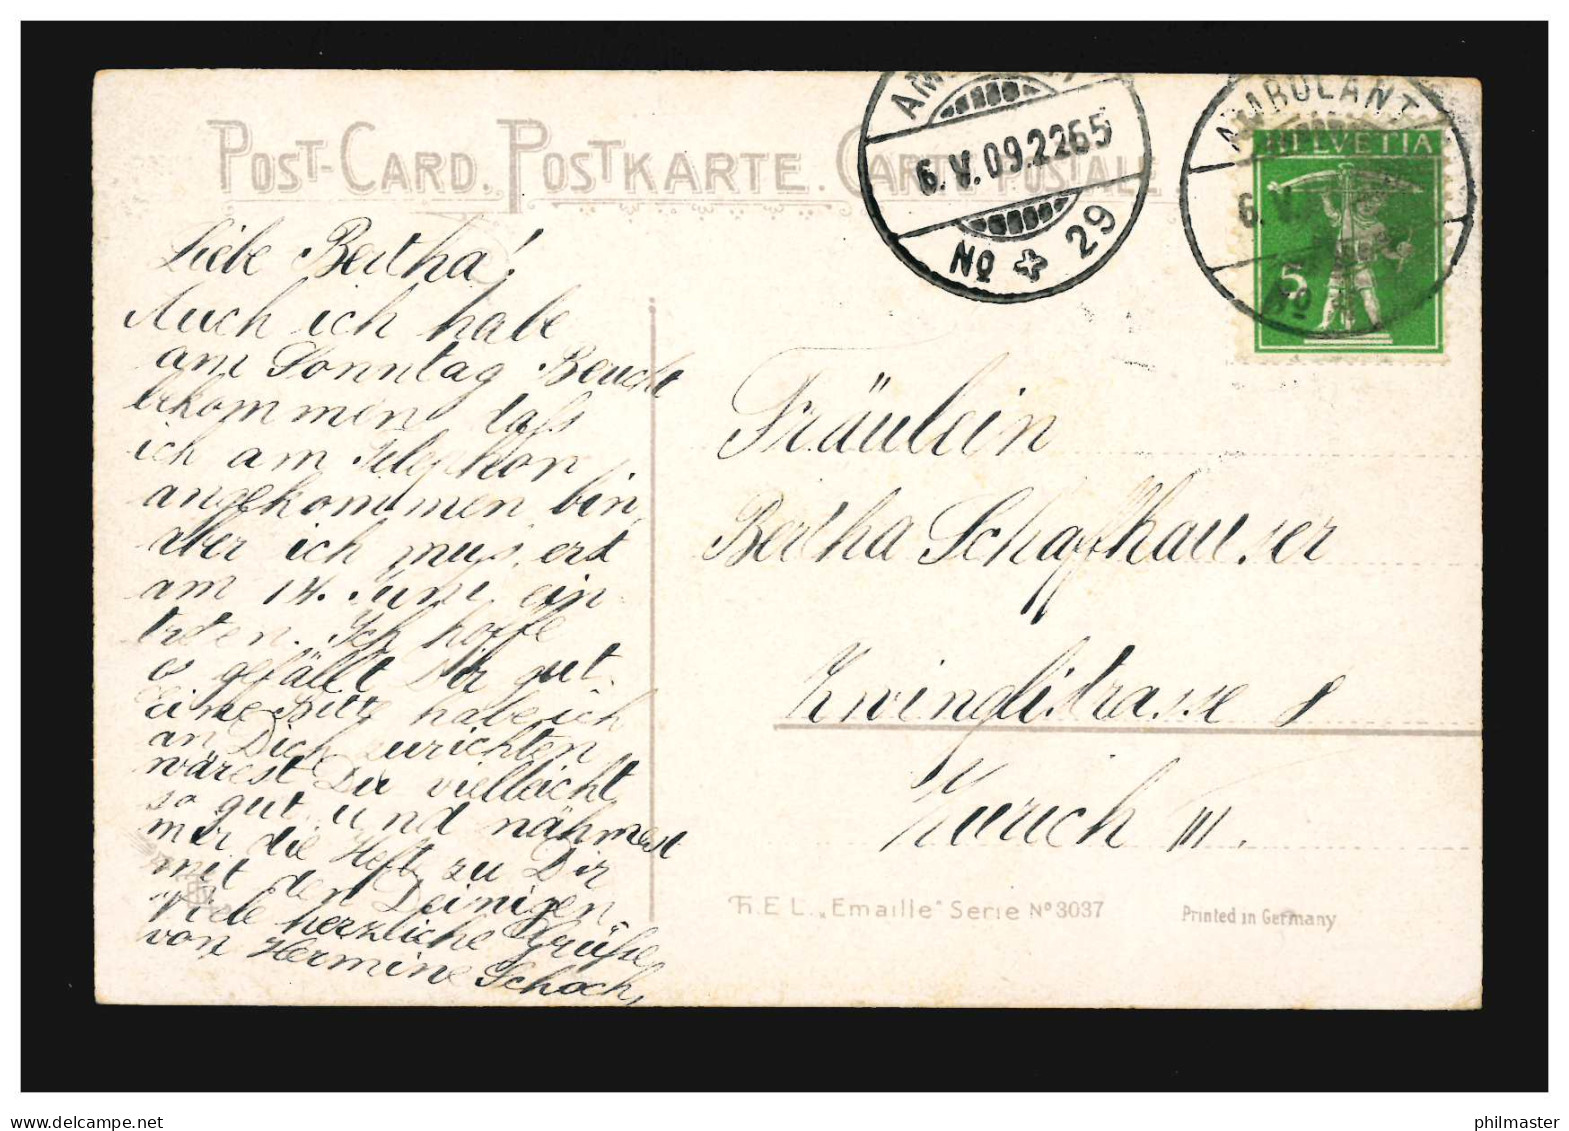 POST-CARD. POSTKARTE. CARTE POSTALE
AMBULANT
6.V.09.2265
No 29
AMBULANT
6.V.
No
HELVETIA
5
Liebe Bertha!
Auch ich habe
am Sonntag
bekommen daß
ich am Telephon
angekommen bin,
aber ich muß erst
am 14. Juni ein-
treten. Ich hoffe
es gefällt Dir gut.
Eine Bitte habe ich
an Dich zurichten
wärest Du vielleicht
so gut und nähmest
mir die Heft zu Dir
mit den Deinigen.
Viele herzliche Grüße
von Hermine Schoch,
Fräulein
Bertha Schaffhauser
Zwinglistrasse 8
Zürich III.
H.E.L. „Emaille" Serie No 3037
Printed in Germany
www.delcampe.net
philmaster